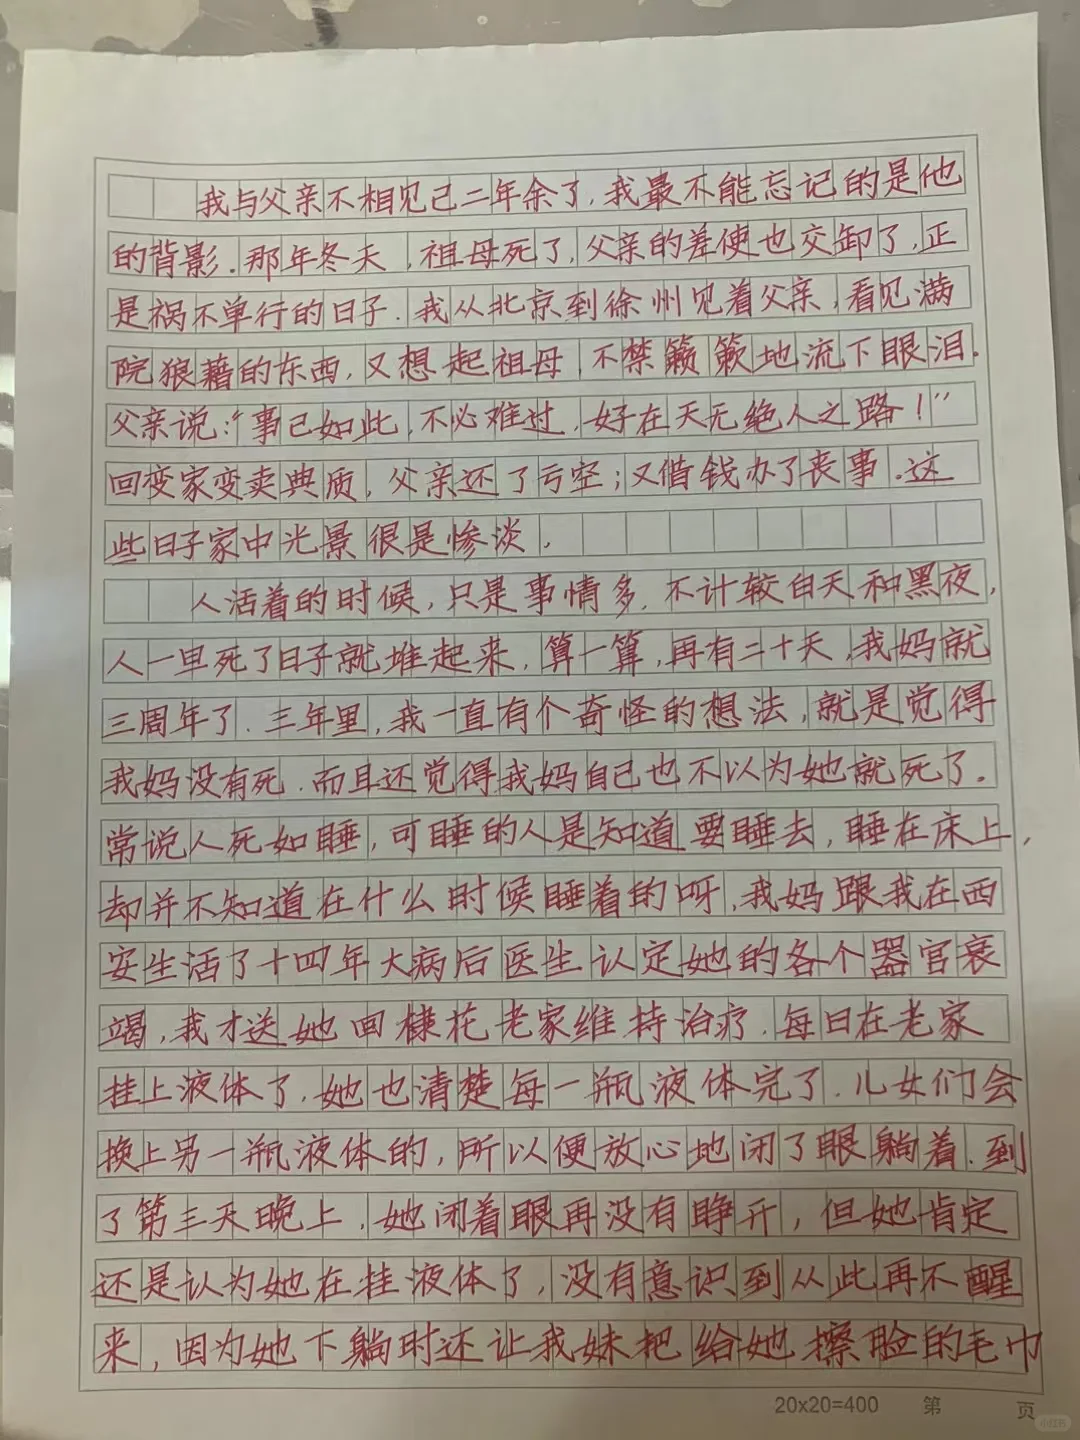 我与父亲不相见已二年余了，我最不能忘记的是他
的背影．那年冬天，祖母死了，父亲的差使也交卸了，正
是祸不单行的日子．我从北京到徐州见着父亲，看见满
院狼藉的东西，又想起祖母，不禁簌簌地流下眼泪．
父亲说：“事已如此，不必难过，好在天无绝人之路！”
回变家变卖典质，父亲还了亏空；又借钱办了丧事．这
些日子家中光景很是惨淡．
人活着的时候，只是事情多，不计较白天和黑夜，
人一旦死了日子就堆起来，算一算，再有二十天，我妈就
三周年了．三年里，我一直有个奇怪的想法，就是觉得
我妈没有死．而且还觉得我妈自己也不以为她就死了。
常说人死如睡，可睡的人是知道要睡去，睡在床上，
却并不知道在什么时候睡着的呀，我妈跟我在西
安生活了十四年大病后医生认定她的各个器官衰
竭，我才送她回棣花老家维持治疗．每日在老家
挂上液体了，她也清楚每一瓶液体完了．儿女们会
换上另一瓶液体的，所以便放心地闭了眼躺着．到
了第三天晚上，她闭着眼再没有睁开，但她肯定
还是认为她在挂液体了，没有意识到从此再不醒
来，因为她下躺时还让我妹把给她擦脸的毛巾
20x20=400 第 页
小红书